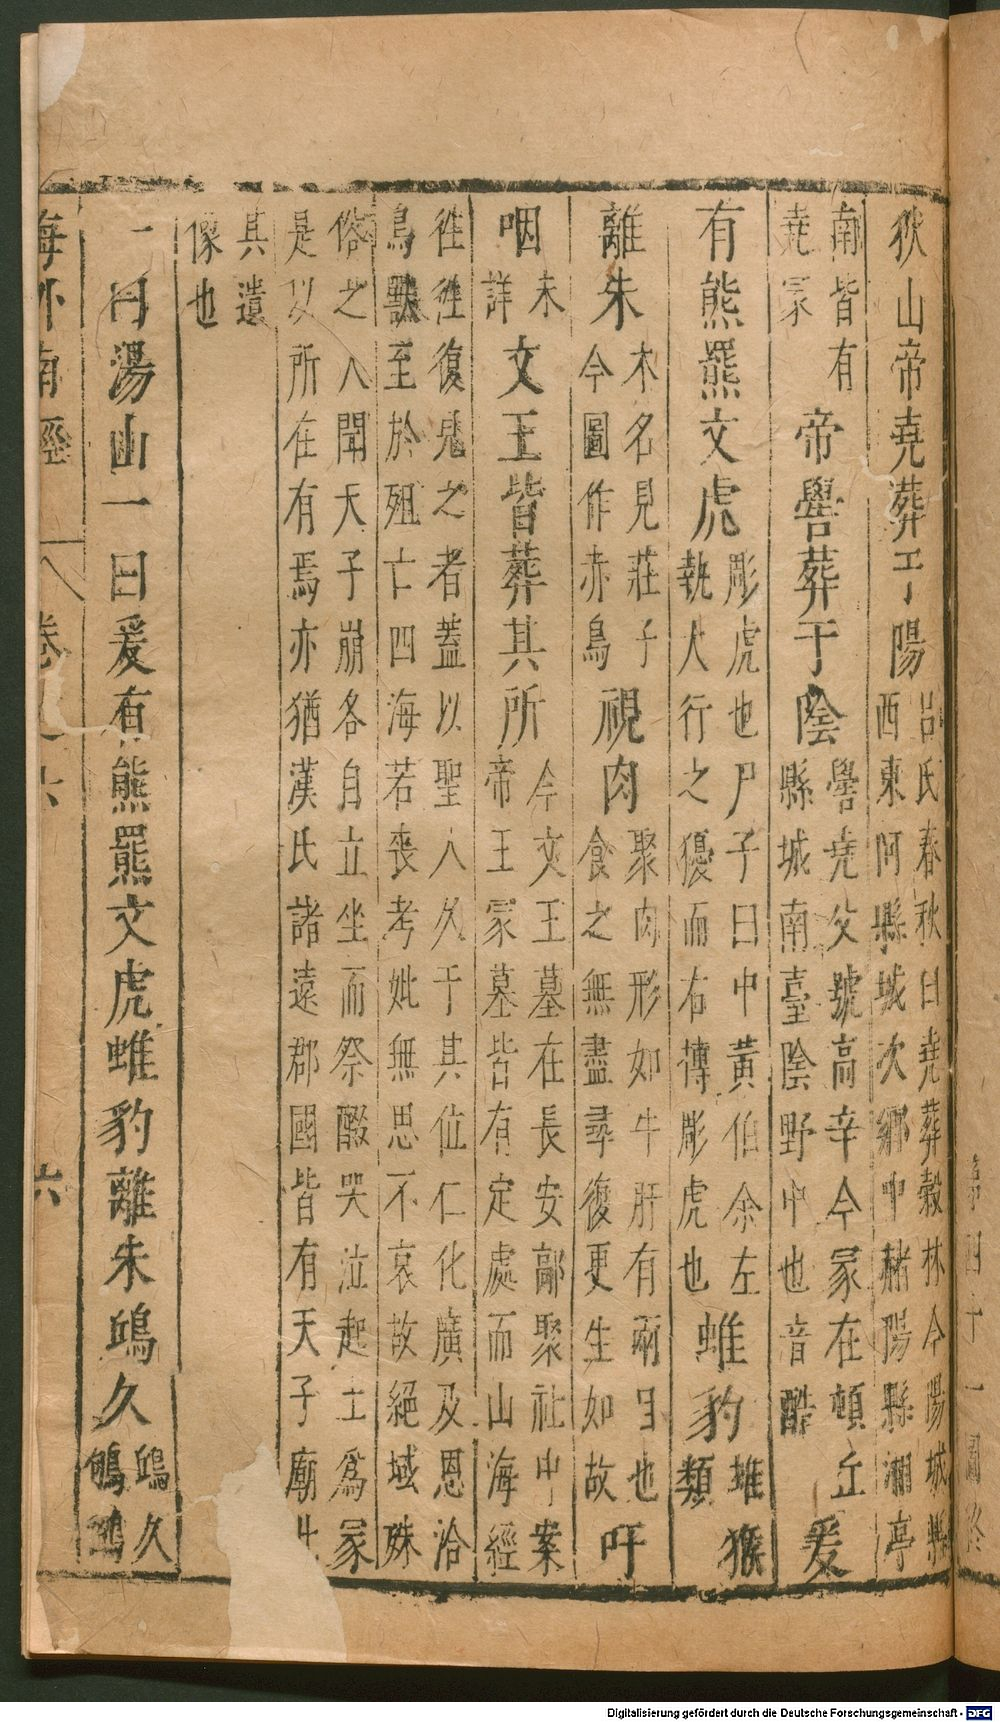 狄山帝堯葬于陽呂氏春秋曰堯葬穀林今陽城縣西東阿縣城次鄉中赭陽縣湘亭
南皆有堯冢帝嚳葬于陰嚳堯父號高辛今冢在頓丘縣城南臺陰野中也音酷爰
有熊羆文虎彫虎也尸子曰中黃伯余左執太行之獶而右摶彫虎也蜼豹蜼猴類
離朱木名見莊子今圖作赤鳥視肉聚肉形如牛肝有兩目也食之無盡尋復更生如故吁
咽未詳文王皆葬其所今文王墓在長安鄗聚社中案帝王冢墓皆有定處而山海經
往往復見之者蓋以聖人久于其位仁化廣及恩洽鳥獸至於殂亡四海若喪考妣無思不哀故絕域殊
俗之人聞天子崩各自立坐而祭醊哭泣起土為冢是以所在有焉亦猶漢氏諸遠郡國皆有天子廟此
其遺像也
一曰湯山一曰爰有熊羆文虎蜼豹離朱鴟久鴟久
海外南經 卷 六
六
Digitalisierung gefördert durch die Deutsche Forschungsgemeinschaft - DFG